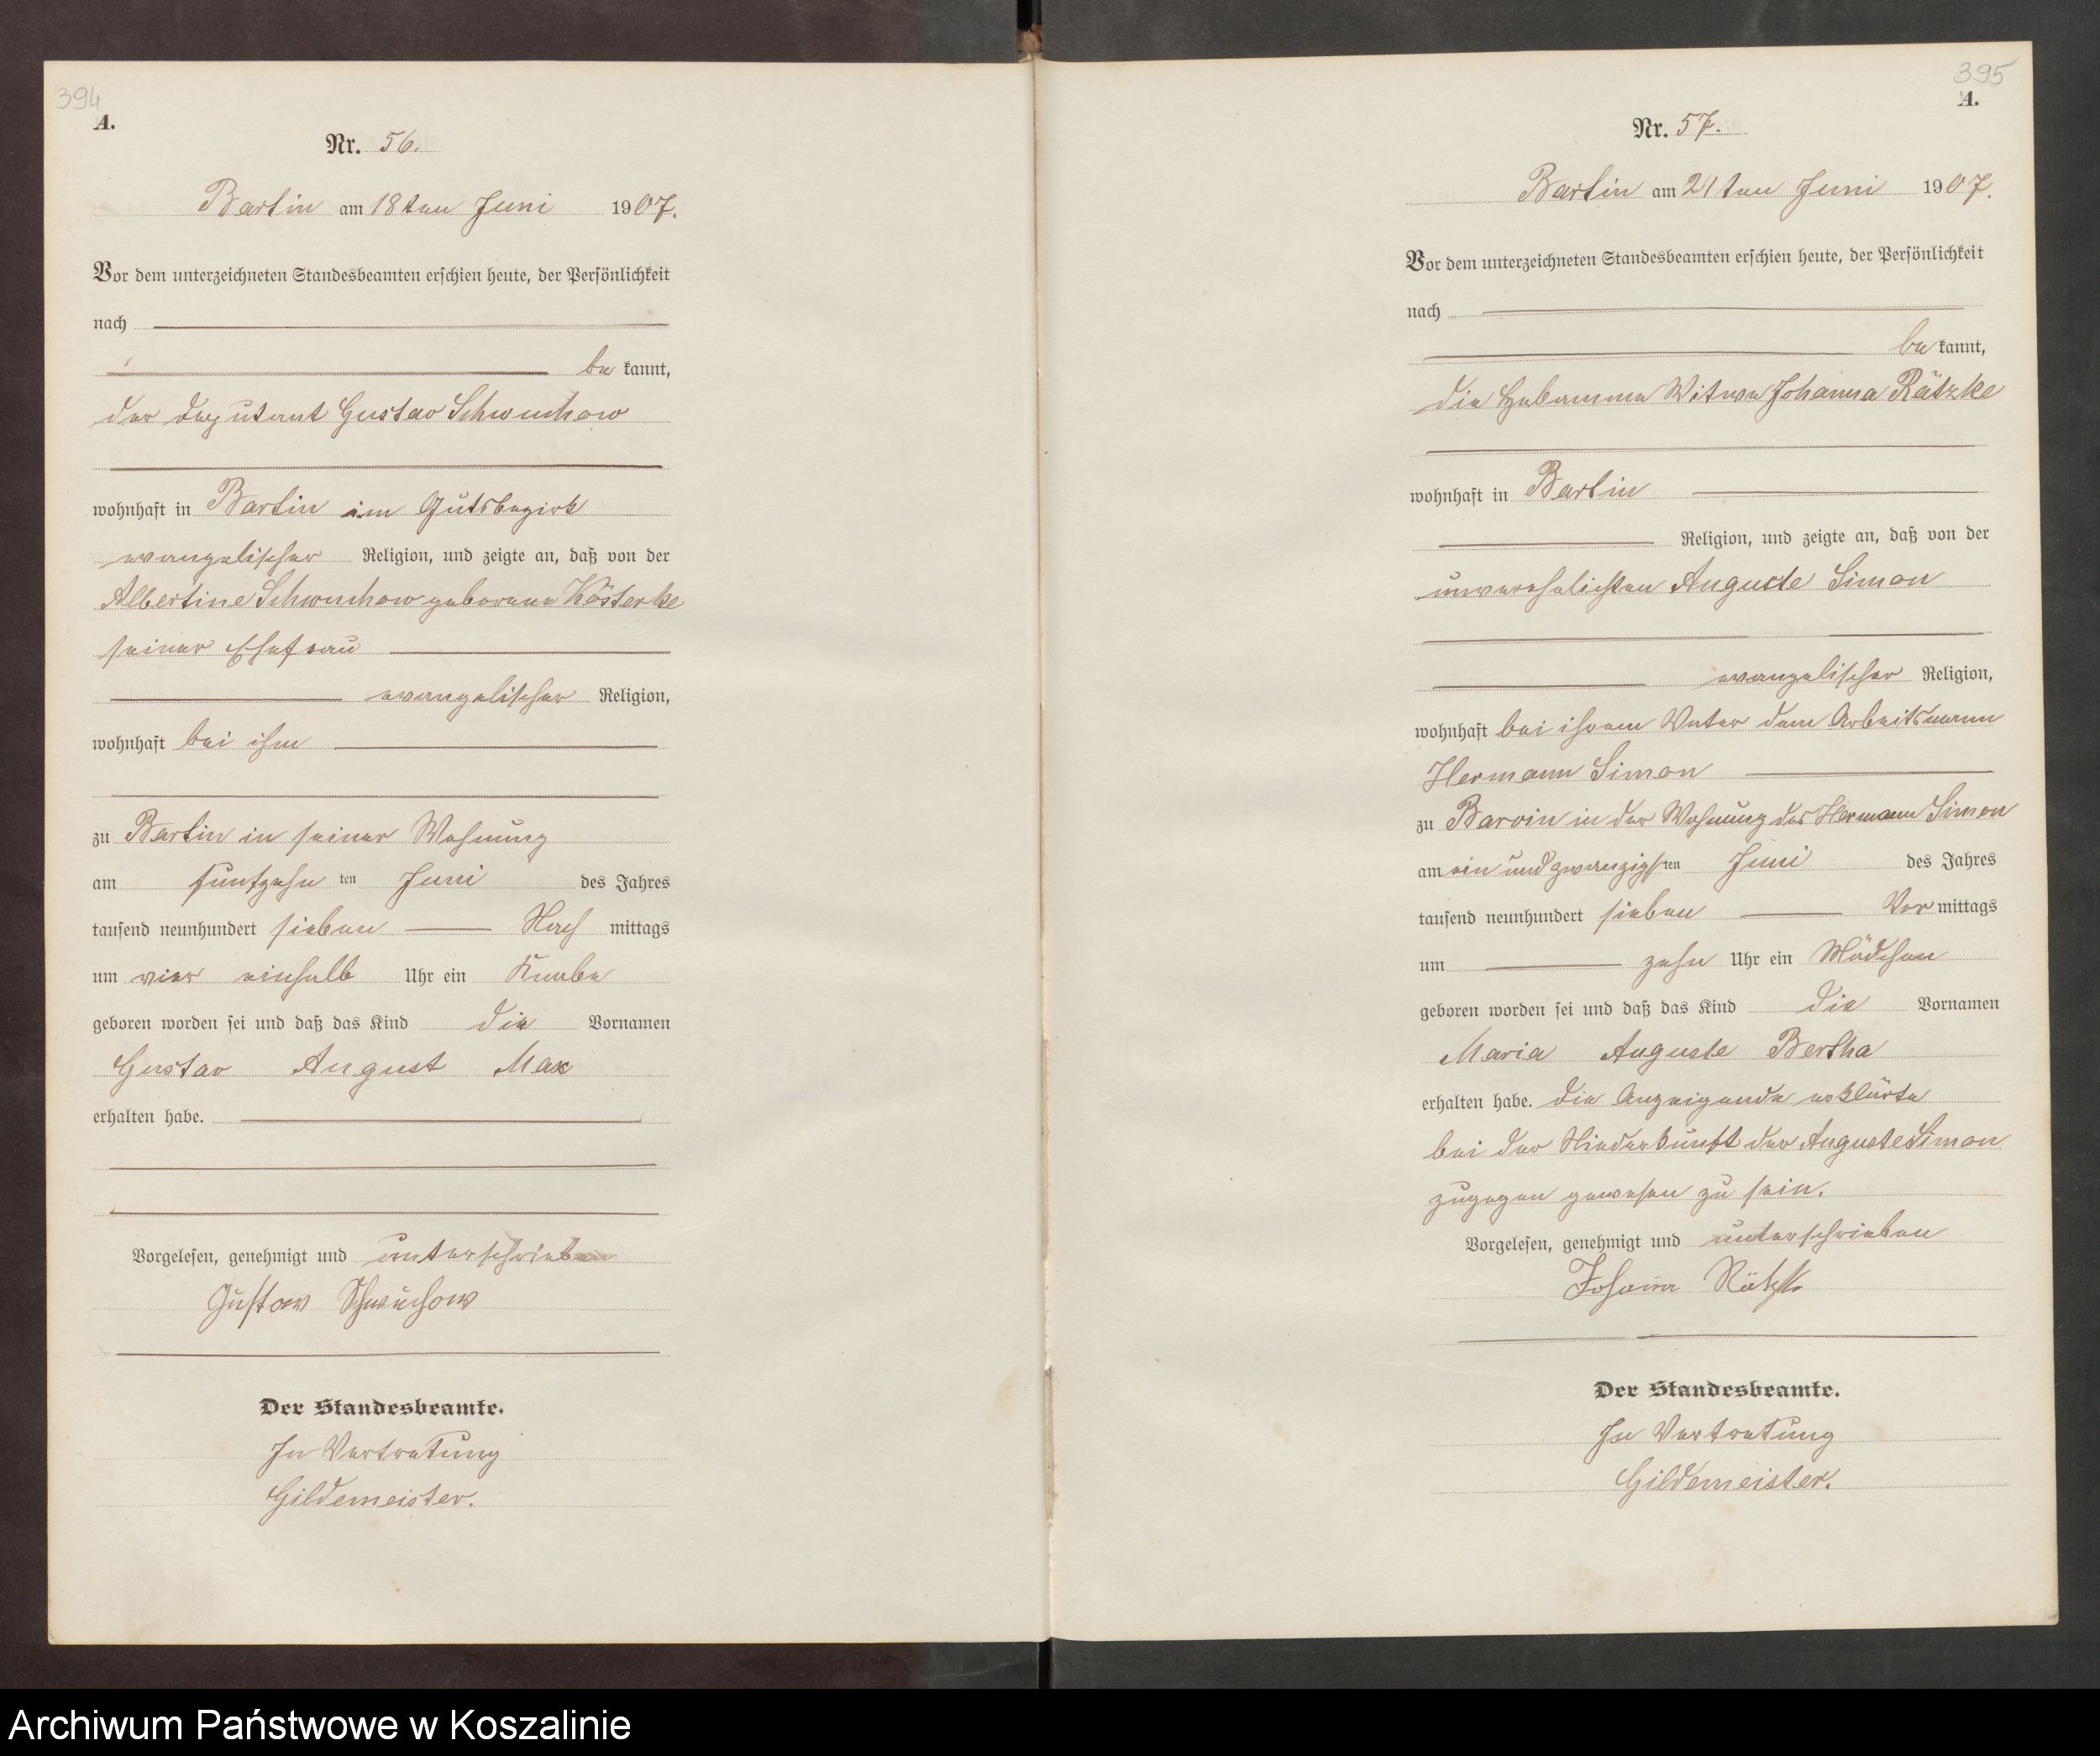 394
A.
Nr. 56.
Bartin am 18ten Juni 1907.
Vor dem unterzeichneten Standesbeamten erschien heute, der Persönlichkeit
nach
be kannt,
der Deputant Gustav Schwuchow
wohnhaft in Bartin im Gutsbezirk
evangelischer Religion, und zeigte an, daß von der
Albertine Schwuchow geborene Kösterke
seiner Ehefrau
evangelischer Religion,
wohnhaft bei ihm
zu Bartin in seiner Wohnung
am fünfzehn ten Juni des Jahres
tausend neunhundert sieben Nach mittags
um vier einhalb Uhr ein Knabe
geboren worden sei und daß das Kind die Vornamen
Gustav August Max
erhalten habe.
Vorgelesen, genehmigt und unterschrieben
Gustav Schwuchow
Der Standesbeamte.
In Vertretung
Gildemeister.
395
A.
Nr. 57.
Bartin am 21ten Juni 1907.
Vor dem unterzeichneten Standesbeamten erschien heute, der Persönlichkeit
nach
be kannt,
die Hebamme Witwe Johanna Rätzke
wohnhaft in Bartin
Religion, und zeigte an, daß von der
unverehelichten Auguste Simon
evangelischer Religion,
wohnhaft bei ihrem Vater dem Arbeitsmann
Hermann Simon
zu Barvin in der Wohnung des Hermann Simon
am ein und zwanzigsten Juni des Jahres
tausend neunhundert sieben Vor mittags
um zehn Uhr ein Mädchen
geboren worden sei und daß das Kind die Vornamen
Maria Auguste Bertha
erhalten habe. Die Anzeigende erklärte
bei der Niederkunft der Auguste Simon
zugegen gewesen zu sein.
Vorgelesen, genehmigt und unterschrieben
Johanna Rätzke
Der Standesbeamte.
In Vertretung
Gildemeister.
Archiwum Państwowe w Koszalinie